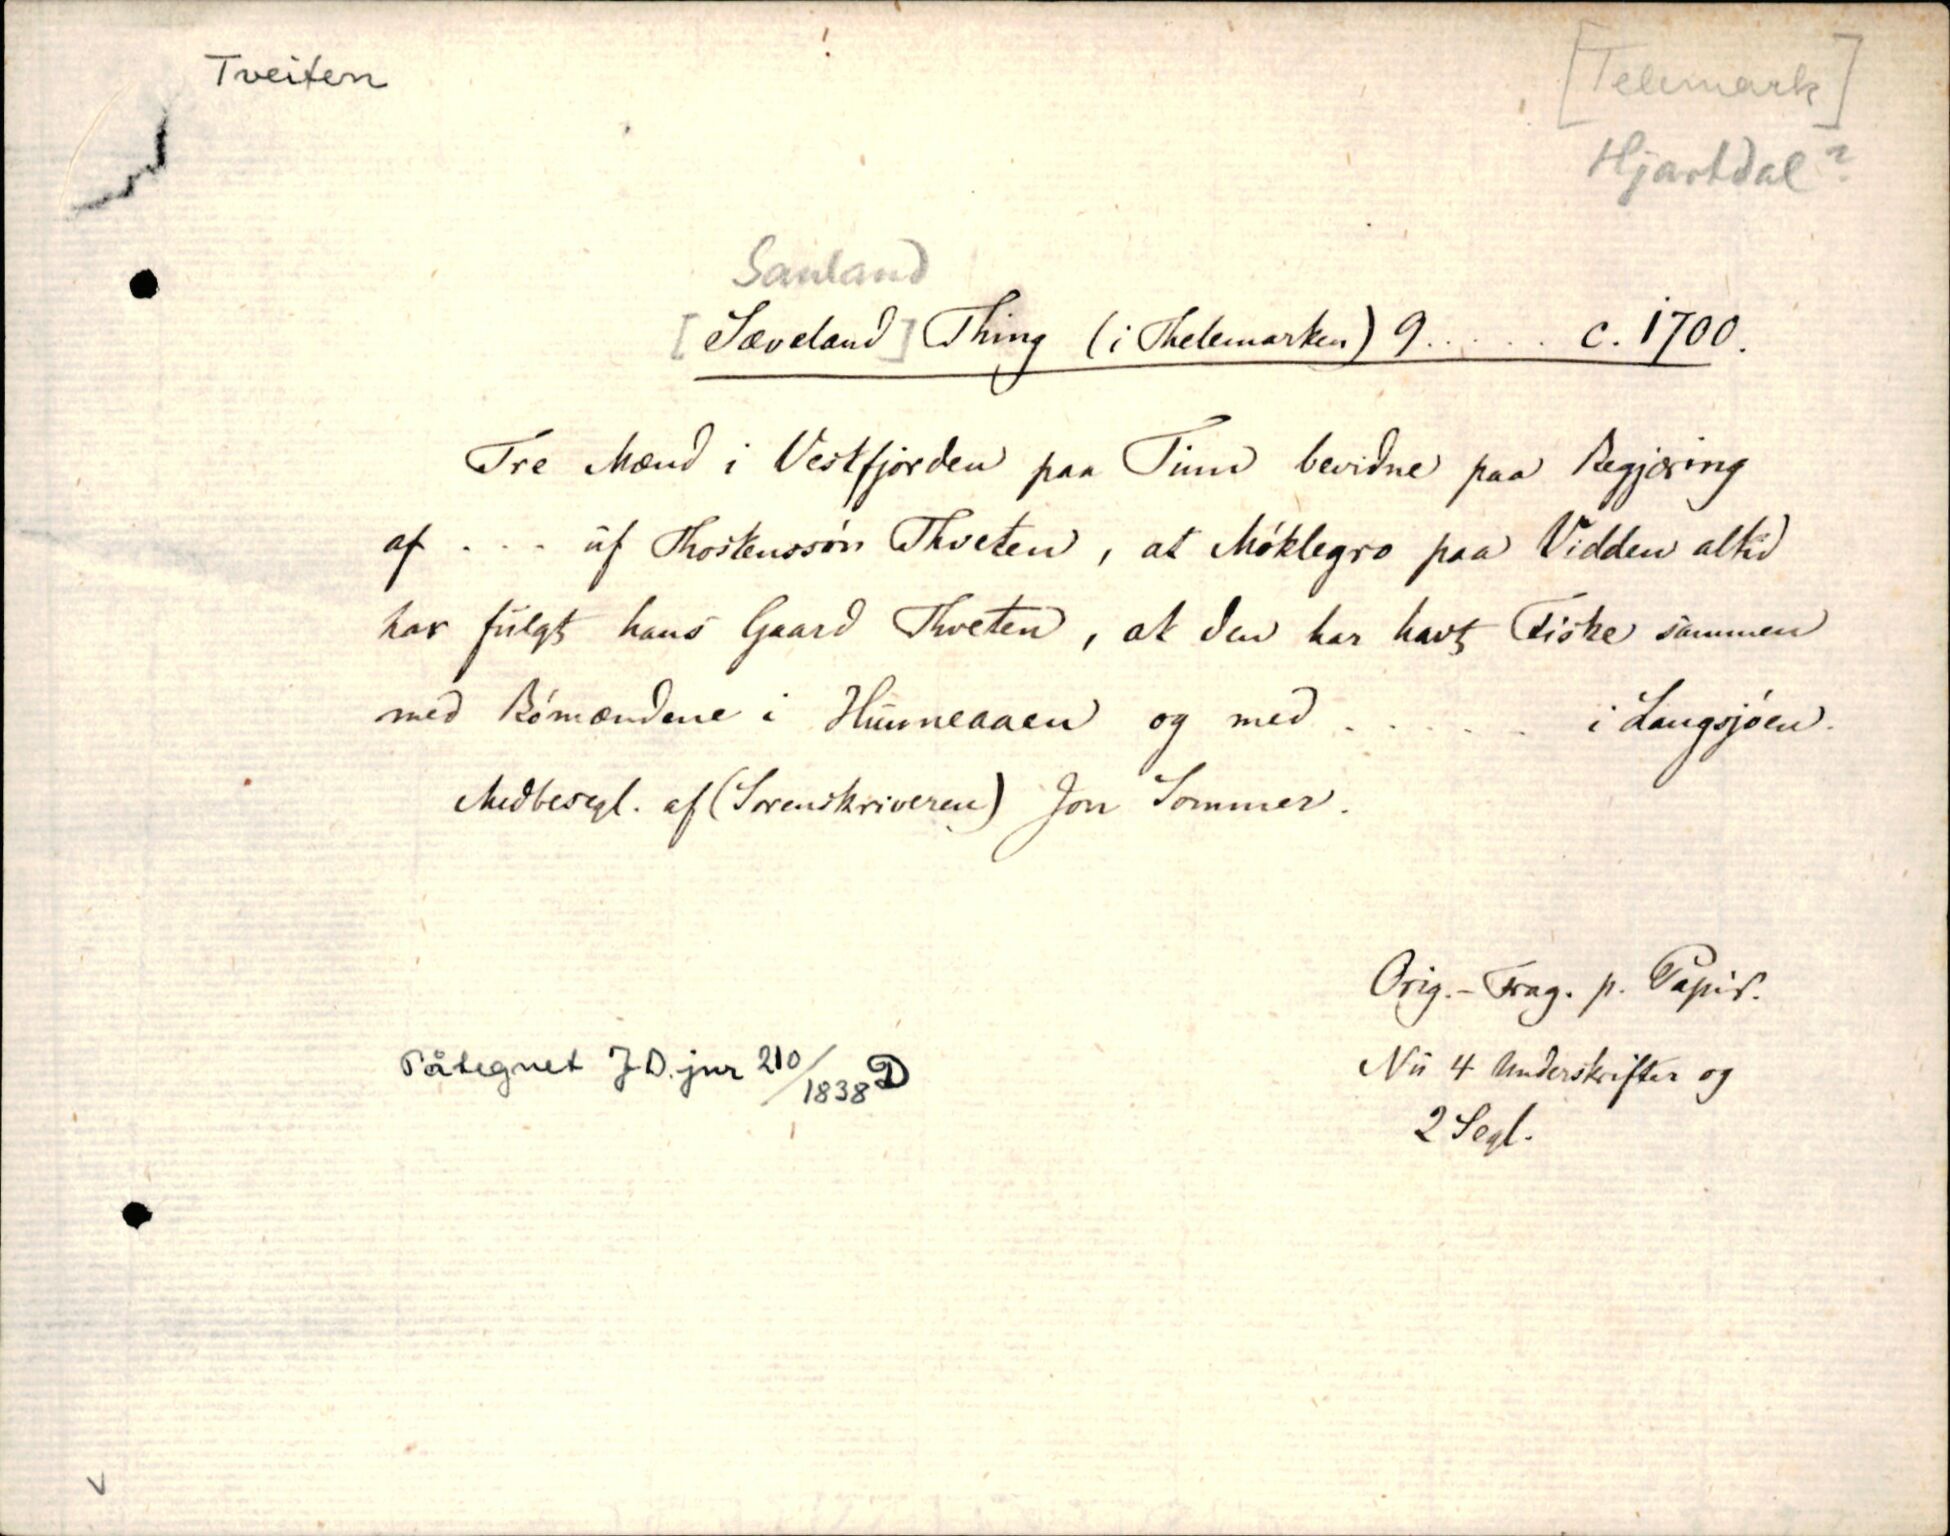 Tveiten
[Telemark]
Hjartdal?
Sauland
[Sæveland] Thing (i Thelemarken) 9..... c. 1700.
Tre Mænd i Vestfjorden paa Tinn bevidne paa Begjæring
af ... uf Thostenssøn Thveten, at Møklegro paa Vidden altid
har fulgt hans Gaard Thveten, at den har havt Fiske sammen
med Bømændene i Hunneaaen og med ..... i Langsjøen.
Medbesegl. af (Sorenskriveren) Jon Sommer.
Orig.-Frag. p. Papir.
Påtegnet J.D. jnr 210/1838 D
Nu 4 Underskrifter og
2 Segl.
v